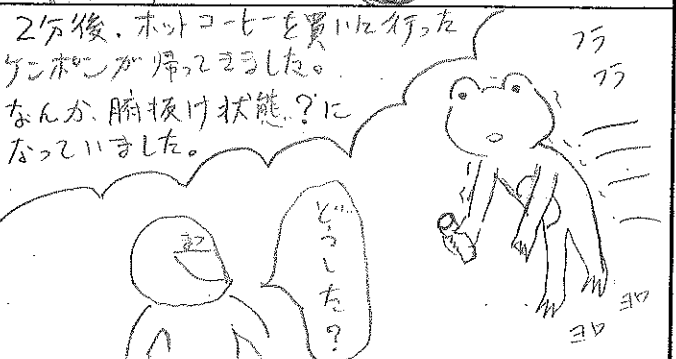 2分後、ホットコーヒーを買いに行った
ケンポンが帰ってきました。
なんか、腑抜け状態？に
なっていました。
フラ
フラ
ど…
どうした？
ヨロ
ヨロ